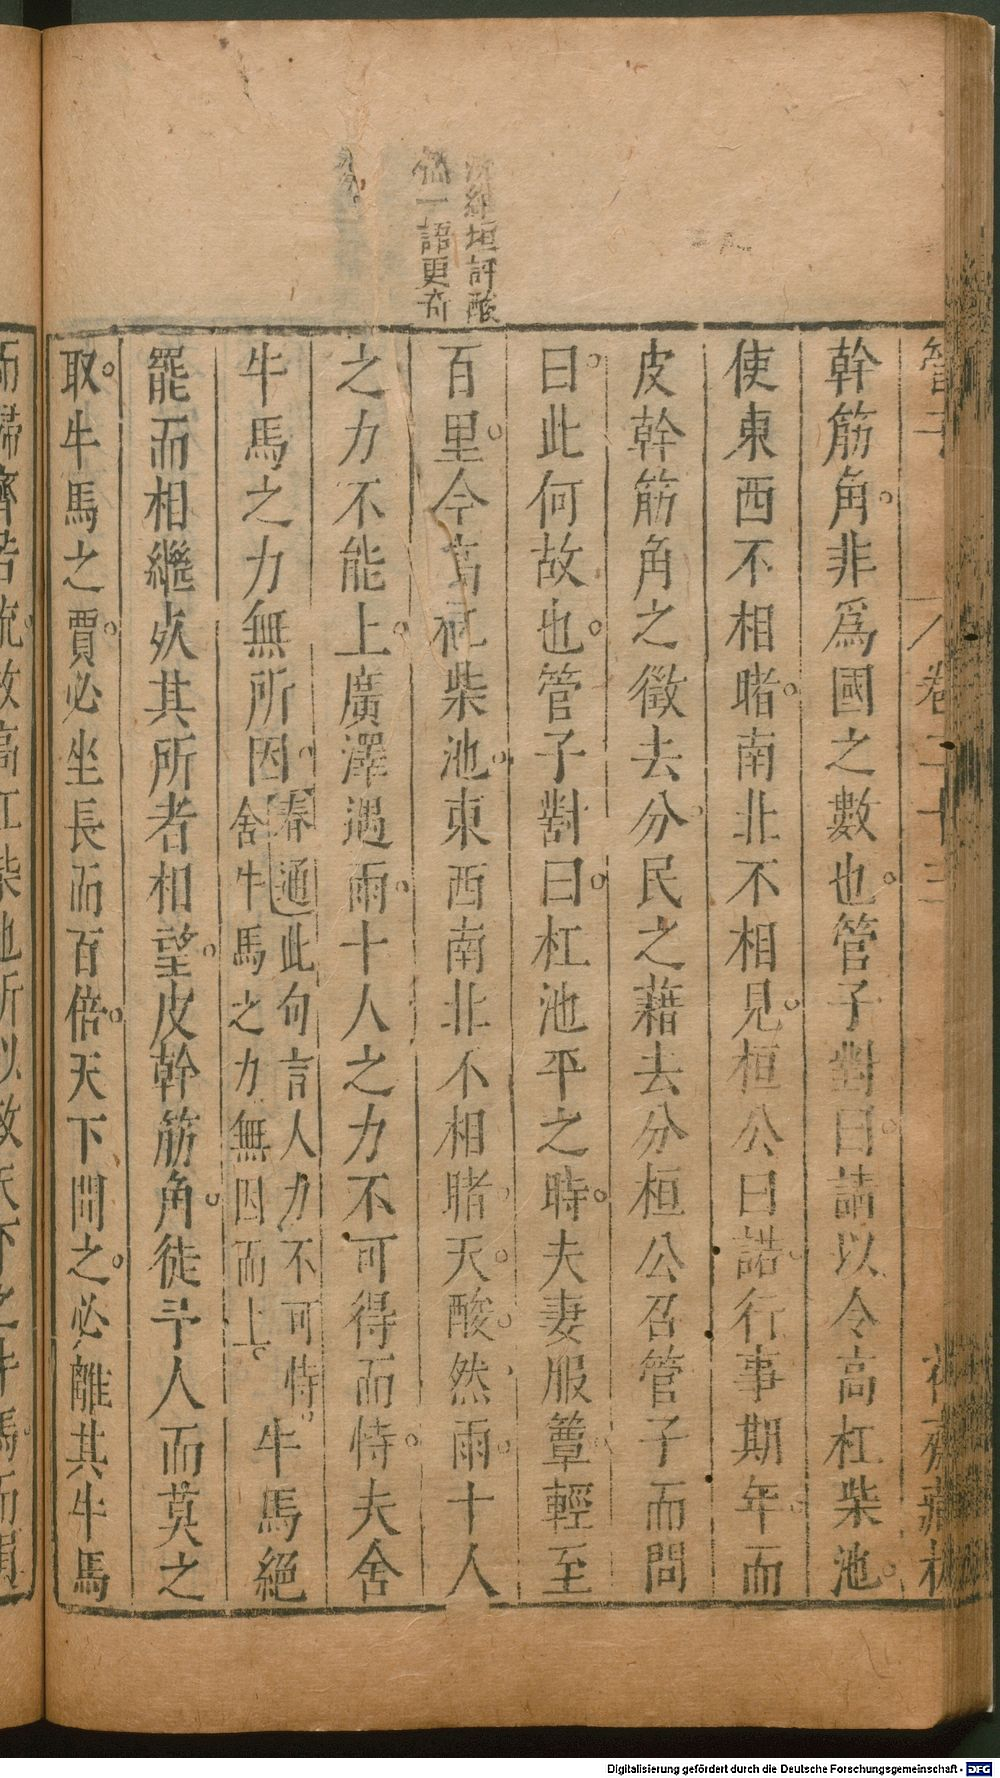 沈維垣評酸
然一語更奇
管子 卷二十三
幹筋角非爲國之數也管子對曰請以令高杠柴池
使東西不相睹南北不相見桓公曰諾行事期年而
皮幹筋角之徵去分民之藉去分桓公召管子而問
曰此何故也管子對曰杠池平之時夫妻服簟輕至
百里今高杠柴池東西南北不相睹天酸然雨十人
之力不能上廣澤遇雨十人之力不可得而恃夫舍
牛馬之力無所因
春通此句言人力不可恃
舍牛馬之力無因而上
牛馬絕
罷而相繼死其所者相望皮幹筋角徒予人而莫之
取牛馬之賈必坐長而百倍天下聞之必離其牛馬
Digitalisierung gefördert durch die Deutsche Forschungsgemeinschaft - DFG